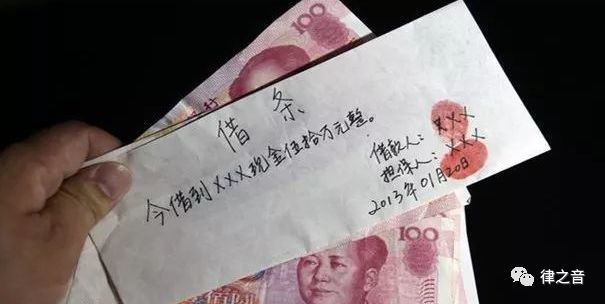 100
借条
今借到XXX现金伍拾万元整。
借款人：XXX
担保人：XXX
2013年01月20日
100
律之音